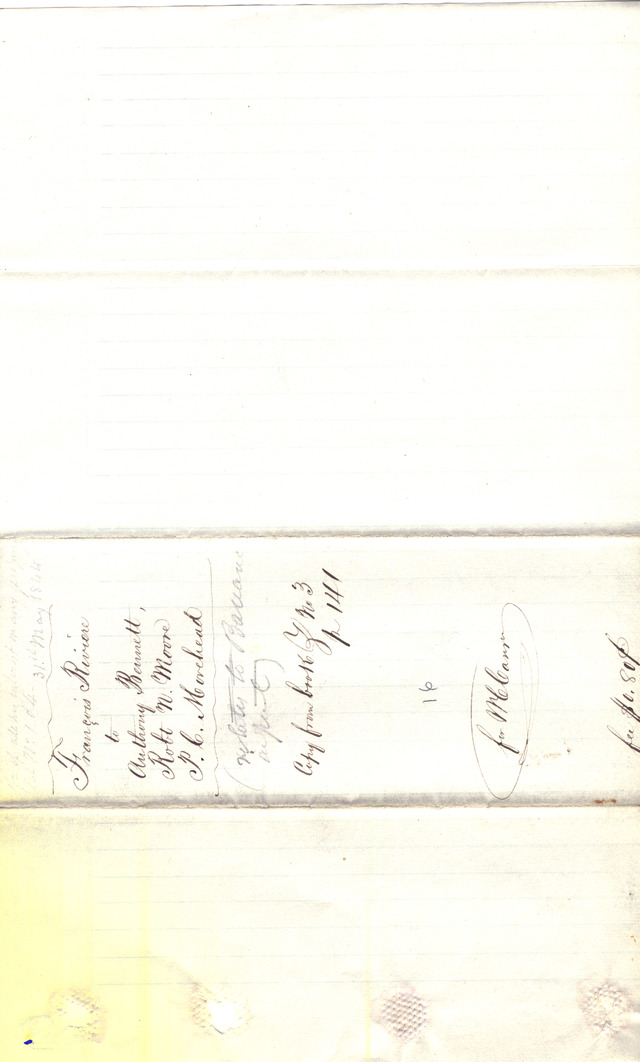 31st May 1844
François Riviere
to
Anthony Bennett,
Robt N. Moore
P. C. Morehead
(relates to
Copy from book G No 3
p 141
16
for McCanse
fee $1.80